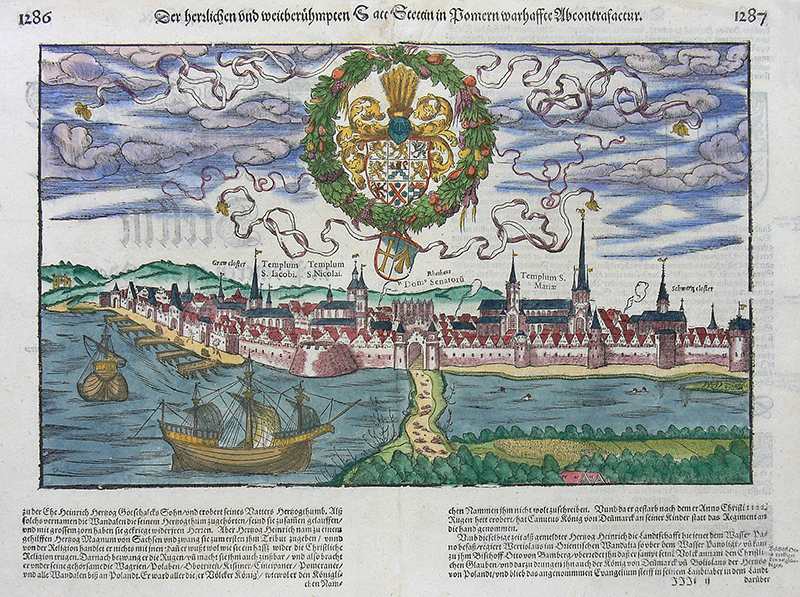 1286
Der herrlichen vnd weitberühmpten Statt Stettin in Pomern warhaffte Abcontrafactur.
1287
Graw closter
Templum S. Iacobi.
Templum S. Nicolai.
Rhathaus
Dom9 Senatorũ
Templum S. Mariæ
Schwartz closter
zu der Ehe Heinrich Hertzog Gotschalcks Sohn/ vnd erobert seines Vatters Hertzogthumb. Als
solchs vernamen die Wandalen die seinem Hertzogthum zugehörten/ seind sie zusamen gelauffen/
vnd mit grossem zorn haben sie gekriegt wider jren Herren. Aber Hertzog Heinrich nam zu einem
gehilffen Hertzog Magnum von Sachsen vnd zwang sie zum ersten jhm Tribut zugeben/ vnnd
von der Religion handlet er nichts mit jnen/ daß er wußt wol wie sie ein haß wider die Christliche
Religion trugen. Darnach bezwang er die Rügen vnd macht sie jhm auch zinßbar/ vnd also bracht
er vnder seine gehorsame die Wagrien/ Polaben/ Obotriten/ Kissiner/ Circipaner/ Pomeraner/
vnd alle Wandalen biß an Polandt. Er ward aller dieser Völcker König/ wiewol er den Königli-
chen Nam-
chen Nammen jhm nicht wolt zuschreiben. Vnnd da er gestarb nach dem er Anno Christi
Rügen hett erobert/ hat Canutus König von Dennmarck an seiner Kinder statt das Regiment an
die hand genommen.
Vnd dieselbige zeit als gemelteter Hertzog Heinrich die Landschafft hie jenet dem Wasser Pa-
no besaß/ regiert Wertislaus im Orientischen Wandalia so ob dem Wasser Pano ligt/ vnd kam
zu jhm Bischoff Otho von Bamberg/ vberredet jhn daß er sampt seim Volck annam den Christli-
chen Glauben/ vnd darzu drungen jhn auch der König von Dennmarck vnd Bolislaus der Hertzog
von Polandt/ vnd blieb das angenommen Euangelium steiff in seinem Land/ aber in dem Landt
JJJJ ij
darüber